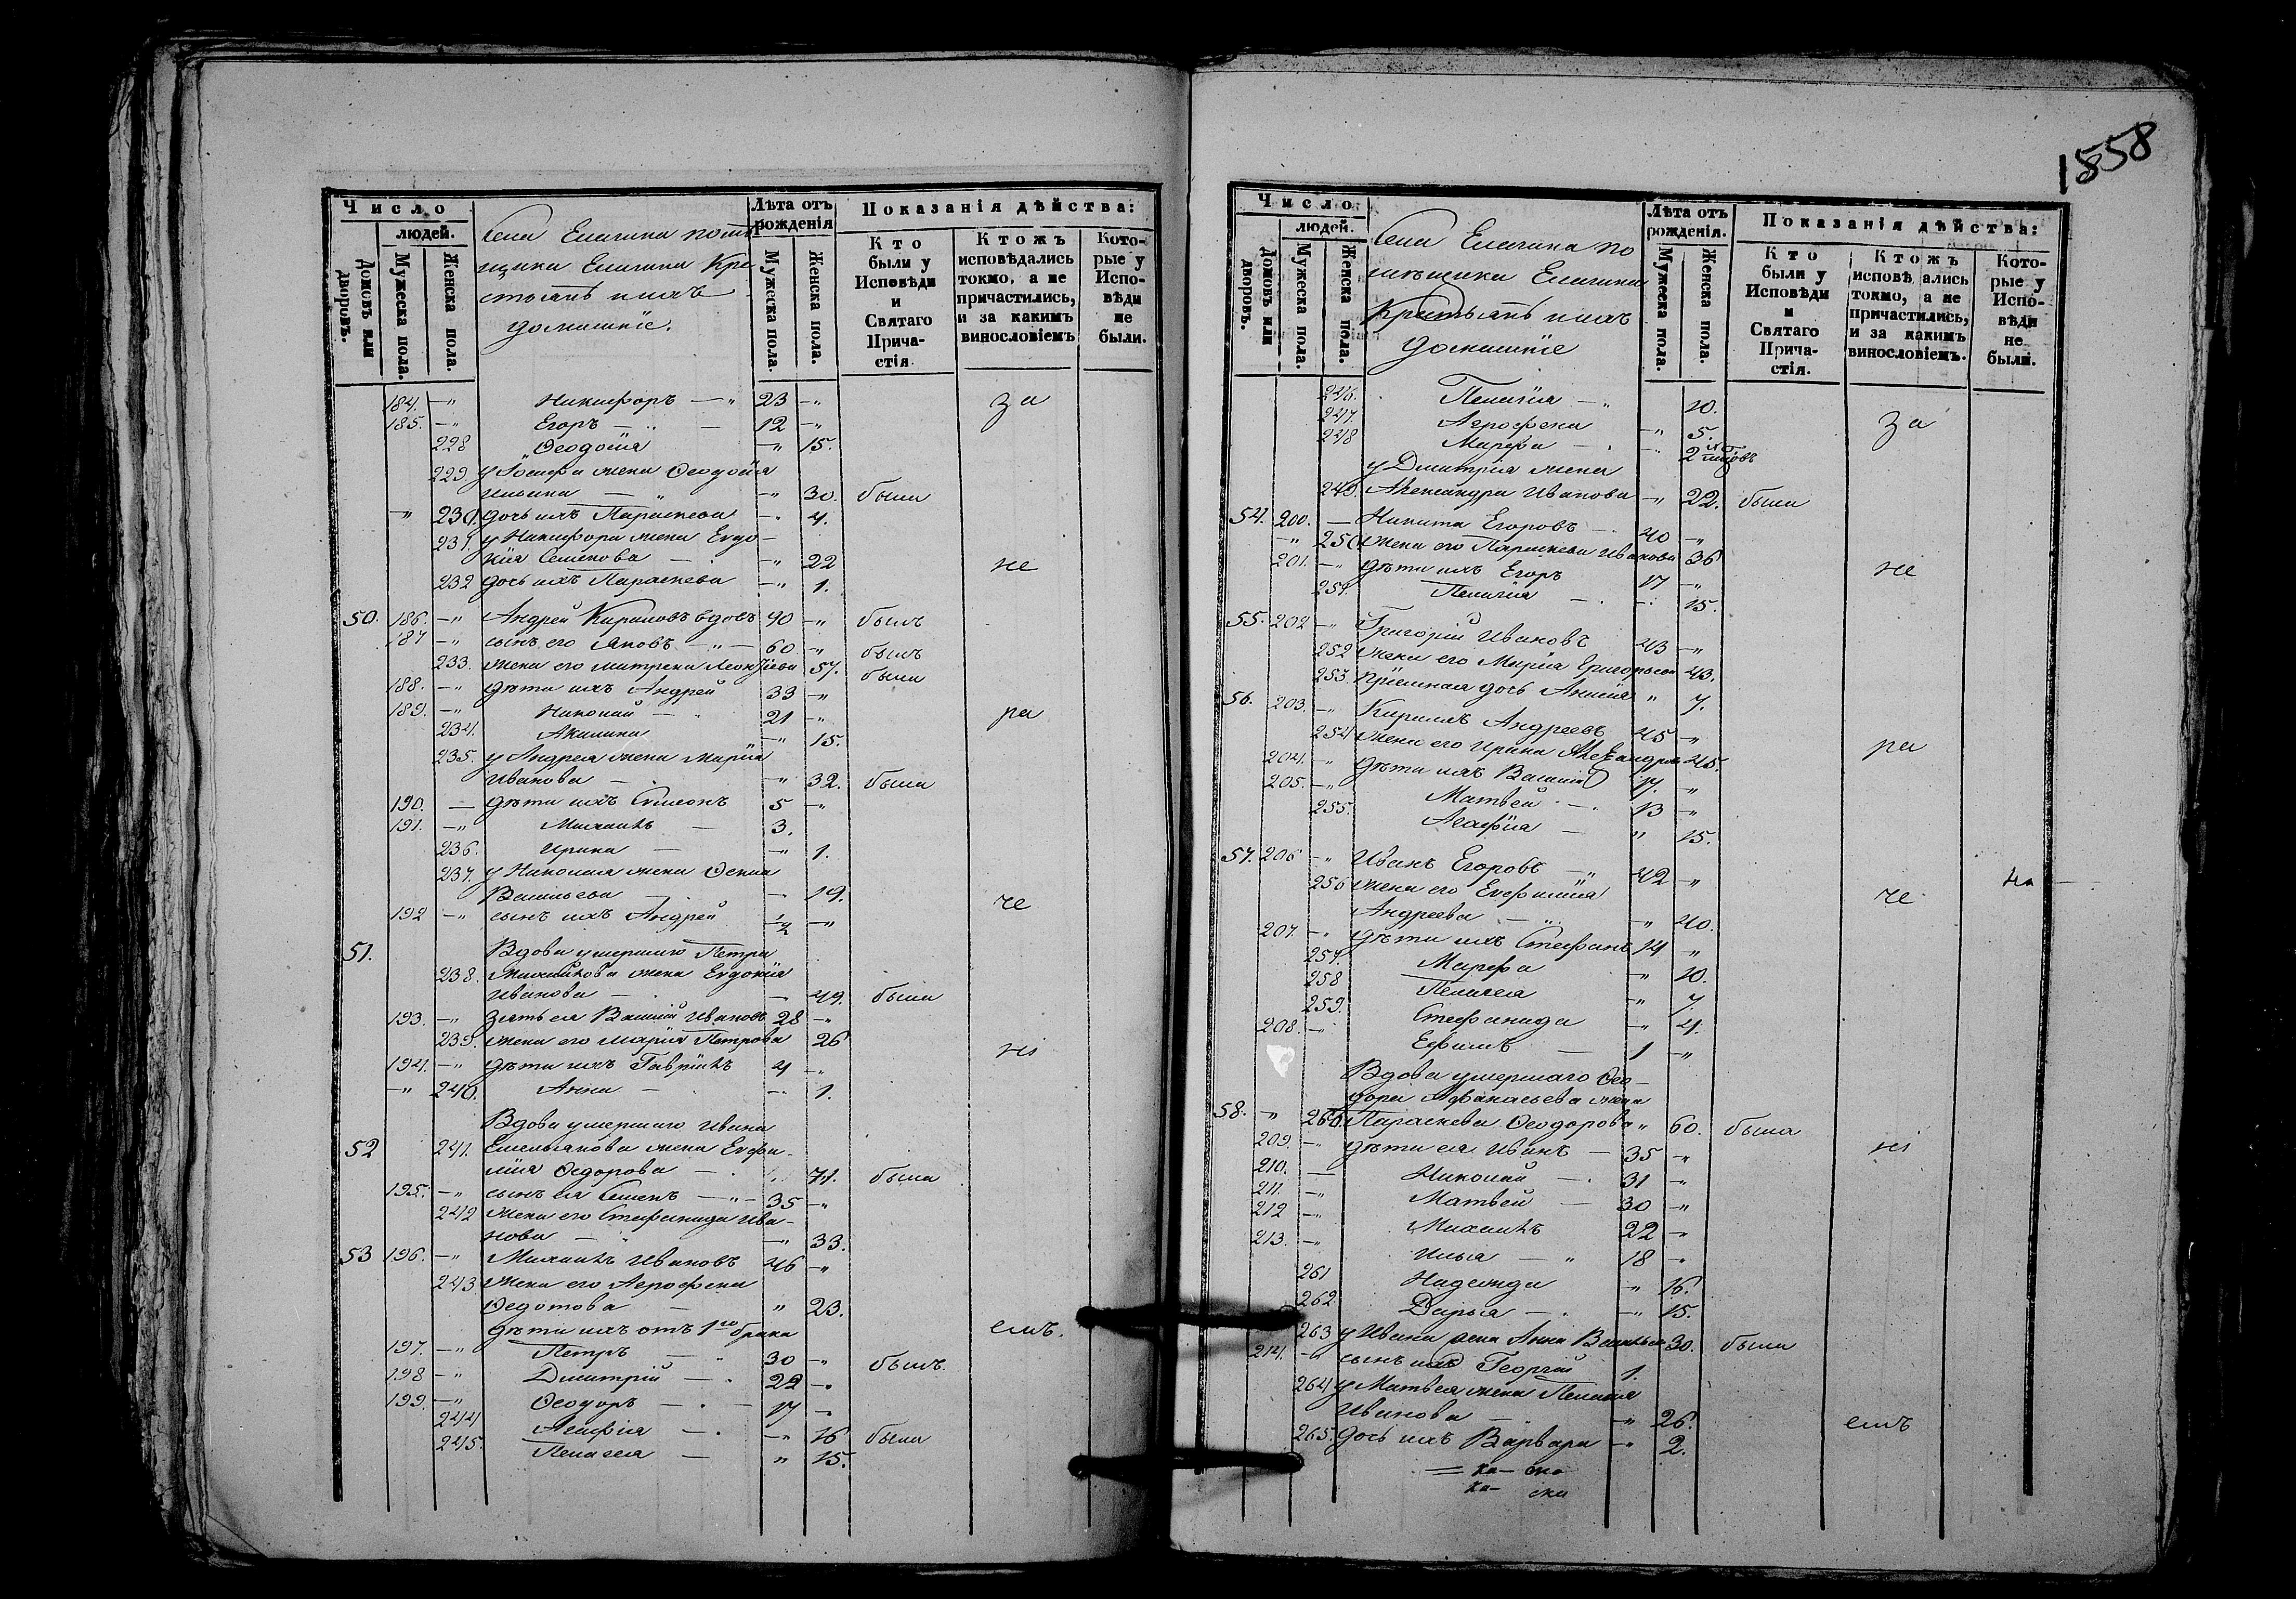 1858
Число
людей.
Домовъ или дворовъ.
Мужеска пола.
Женска пола.
села Елагина помѣ
щика Елагина Кре
стьянѣ ихъ
домашніе.
Лѣта отъ рожденія
Мужеска пола.
Женска пола.
Показанія дѣйства:
Кто были у Исповѣди и Святаго Прича- стія.
Ктожъ исповѣдались токмо, а не причастились, и за какимъ винословіемъ
Кото- рые у Испо- вѣди не были.
184. —" Никифоръ —" 23 —" за
185. —" Егоръ — " — 12 —"
228 Ѳеодосія —" 15.
229 у Іосифа жена Ѳеодосія
Ильина — " —" 30. была
—" 230. дочь ихъ Параскева —" 4.
231. у Никифора жена Евдо-
кія Семенова — —" 22 не
232 дочь ихъ Параскева —" 1.
50. 186. —" Андрей Кириловъ вдовъ 90 —" былъ
187 —" сынъ его Іаковъ —"— 60 —" былъ
233. жена его Матрена Леонтіева 57. была
188. —" дѣти ихъ Андрей 33 —"
189. —" Николай — 21 —" ра
234. Акилина —" 15.
235. у Андрея жена Марія
Иванова — —" 32. была
190. — дѣти ихъ Симеонъ 5 —"
191. —" Михаилъ — 3.
236. Ирина — —" 1.
237. у Николая жена Ѳекла
Васильева — — 19. че
192 —" сынъ ихъ Андрей ½ —"
51. Вдова умершаго Петра
238. Михайлова жена Евдокія
Иванова — — 49. была
193. —" зять ея Василій Ивановъ 28 —"
239. жена его Марія Петрова 26 ні
194. —" дѣти ихъ Гавріилъ 4 —"
—" 240. Анна — — 1.
Вдова умершаго Ивана
52 241. Емельянова жена Евфи-
мія Ѳедорова — 71. была
195. —" сынъ ея Семенъ —"— 35 —"
242 жена его Стефанида Ива-
нова — —" 33.
53 196. —" Михаилъ Ивановъ 46 —"
243 жена его Агрофена
Ѳедотова — " 23.
дѣти ихъ отъ 1го брака емъ.
197. —" Петръ —" 30 —" былъ.
198 —" Димитрій — 22 —"
199. —" Ѳеодоръ — 17 —"
244 Агафія — —" 16 была
245. Пелагея — " 15.
Число
людей.
Домовъ или дворовъ.
Мужеска пола.
Женска пола.
села Елагина по
мѣщика Елагина
Крестьянѣ ихъ
домашніе
Лѣта отъ рожденія.
Мужеска пола.
Женска пола.
Показанія дѣйства:
Кто были у Исповѣди и Святаго Прича- стія.
Ктожъ исповѣ ались токмо, а не причастились, и за какимъ винословіемъ.
Кото- рые у Испо- вѣди не были.
246. Пелагія —" 10.
247. Агрофена —" 5. за
248 Марфа — —" 2
у Димитрія жена
249. Александра Иванова —" 22. была
54. 200. — Никита Егоровъ — 40 —"
—" 250 жена его Параскева Иванова 36
201. —" дѣти ихъ Егоръ 17 —" не
251. Пелагія — 15.
55. 202 —" Григорій Ивановъ 43 —"
252 жена его Марія Григорьева 43.
253. пріемная дочь Анисія " 7.
56. 203. —" Кирилъ Андреевъ 45 —"
254 жена его Ирина Александрова 45. ра
204. —" дѣти ихъ Василій 17. —"
205. —" Матвей — 13 —"
255. Агафія — " 15.
57. 206 —" Иванъ Егоровъ —" 42 —" на
256 жена его Евфимія че
Андреева —" —" 40.
207. —" дѣти ихъ Стефанъ 14 —"
257. Марфа —" 10.
258 Пелагея —" 7.
259. Стефанида —" 4.
208. —" Ефимъ — 1 —"
Вдова умершаго Ѳео-
дора Афанасьева жена
58. —" 260. Параскева Ѳеодорова " 60. была
209. —" дѣти ея Иванъ — 35 —" ні
210. — Николай — 31 —"
211. —" Матвей — 30 —"
212 —" Михаилъ 22 —"
213. —" Илья —" 18 —"
261 Надежда —" 16.
262 Дарья — —" 15.
263 у Ивана жена Анна Васильева 30. была
214. —" сынъ ихъ Георгій 1.
264 у Матвея жена Пелагія
Иванова — —" 26. емъ
265. дочь ихъ Варвара —" 2.